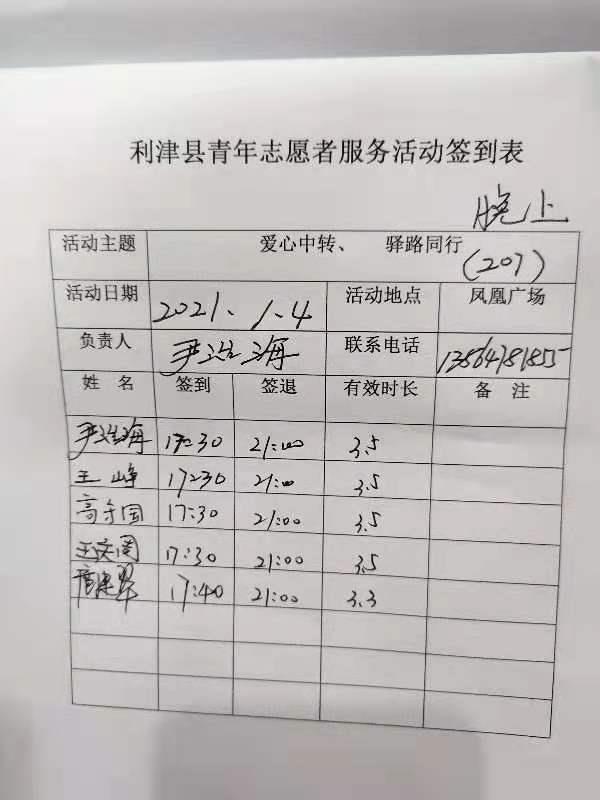 利津县青年志愿者服务活动签到表
晚上
活动主题 爱心中转、 驿路同行 (207)
活动日期 2021.1.4 活动地点 凤凰广场
负责人 尹浩海 联系电话 13864781855
姓 名 签到 签退 有效时长 备 注
尹浩海 17:30 21:00 3.5
王峥 17:30 21:00 3.5
高守国 17:30 21:00 3.5
17:30 21:00 3.5
17:40 21:00 3.3